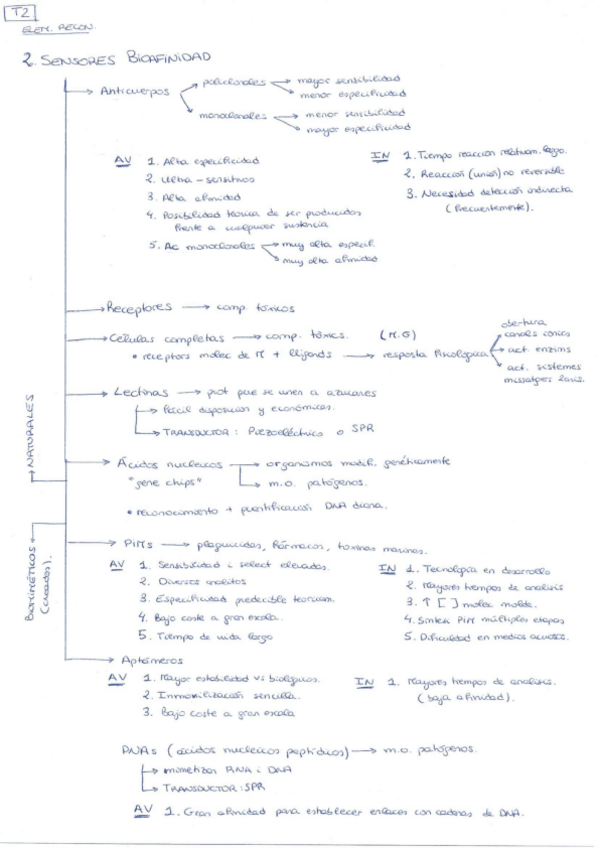 T2
ELEM. RECON.
2. SENSORES BIOAFINIDAD
Anticuerpos
policlonales → mayor sensibilidad
menor especificidad
monoclonales → menor sensibilidad
mayor especificidad
AV 1. Alta especificidad
2. Ultra-sensitivos
3. Alta afinidad
4. Posibilidad teórica de ser producidos
frente a cualquier sustancia
5. Ac monoclonales → muy alta especif.
muy alta afinidad
IN 1. Tiempo reacción relativam. largo.
2. Reacción (unión) no reversible
3. Necesidad detección indirecta
(frecuentemente).
Receptores → comp. tóxicos
Células completas → comp. tòxics. (M.O)
• receptors molec de M + lligands → resposta fisiològica
obertura
canals iònics
act. enzims
act. sistemes
missatgers
Lectinas → prot que se unen a azúcares
Fácil disposición y económicas.
TRANSDUCTOR: Piezoeléctrico o SPR
NATURALES
Ácidos nucleicos → organismos modif. genéticamente
"gene chips" m.o. patógenos.
• reconocimiento + cuantificación DNA diana.
BIOMIMÉTICOS
(creados).
PIMs → plaguicidas, fármacos, toxinas marinas.
AV 1. Sensibilidad i select elevadas.
2. Diversos analitos
3. Especificidad predecible teóricam.
4. Bajo coste a gran escala.
5. Tiempo de vida largo
IN 1. Tecnología en desarrollo
2. Mayores tiempos de analisis
3. ↑ [ ] molec molde.
4. Síntesis PIM múltiples etapas
5. Dificultad en medios acuosos.
Aptámeros
AV 1. Mayor estabilidad vs biológicos.
2. Inmovilización sencilla.
3. Bajo coste a gran escala
IN 1. Mayores tiempos de analisis.
(baja afinidad).
PNAs (ácidos nucleicos peptídicos) → m.o. patógenos.
mimetizan RNA i DNA
TRANSDUCTOR: SPR
AV 1. Gran afinidad para establecer enlaces con cadenas de DNA.